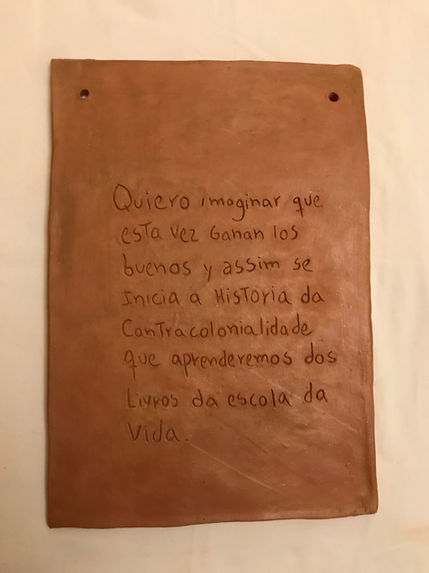 Quiero imaginar que
esta vez Ganan los
buenos y assim se
Inicia a Historia da
Contracolonialidade
que aprenderemos dos
Livros da escola da
Vida.